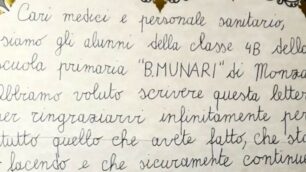 Cari medici e personale sanitario,
siamo gli alunni della classe 4B della
scuola primaria "B.MUNARI" di Monza
Abbiamo voluto scrivere questa letter
per ringraziarvi infinitamente per
tutto quello che avete fatto, che sta
facendo e che sicuramente continue